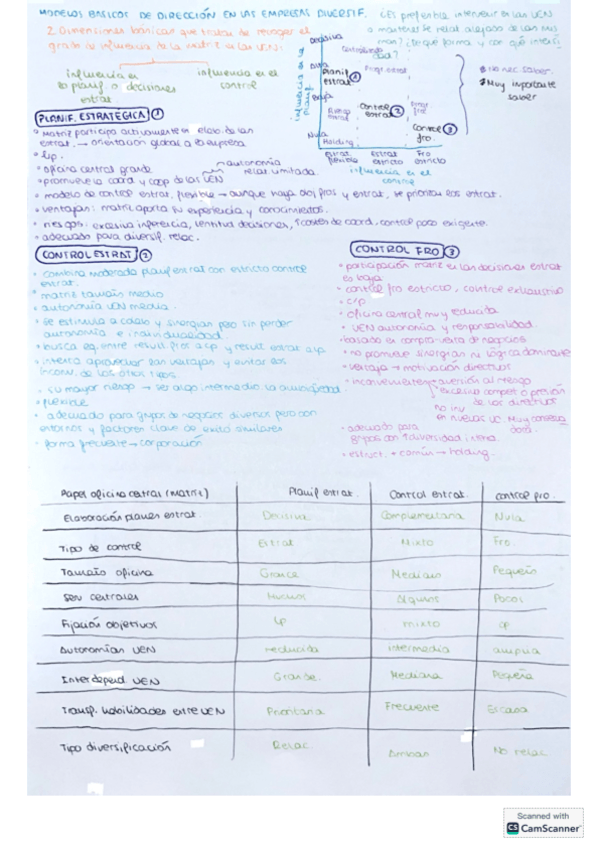 MODELOS BASICOS DE DIRECCIÓN EN LAS EMPRESAS DIVERSIF.
¿Es preferible intervenir en las UEN
o mantenerse relat alejado de las mis
mas? ¿de qué forma y con qué intensi
dad?
2 Dimensiones básicas que tratan de recoger el
grado de influencia de la matriz en las UEN:
influencia en
la planif. o decisiones
estrat
influencia en el
control
Decisiva
Alta
Baja
Nula
Planif
estrat ①
Control
estrat ②
Control
fro. ③
Holding
Estrat
flexible
Estrat
estricto
Fro
estricto
influencia en el
control
No nec saber.
Muy importante
saber
PLANIF. ESTRATEGICA ①
• Matriz participa activamente en elabo. de las
estrat. → orientación global a la empresa
• lp.
• oficina central grande
autonomía
relat limitada
• promueve la coord y coop de las UEN
• modelo de control estrat. flexible → aunque haya obj fros y estrat, se priorizan los estrat.
• ventajas: matriz aporta su experiencia y conocimientos.
• riesgos: excesiva injerencia, lentitud decisiones, ↑costes de coord, control poco exigente.
• adecuado para diversif. relac.
CONTROL ESTRAT ②
• combina moderada planif estrat con estricto control
estrat.
• matriz tamaño medio
• autonomía UEN media.
• se estimula a colabo y sinergias pero sin perder
autonomía e individualidad.
• busca eq. entre result fros a cp y result estrat a lp
• intenta aprovechar las ventajas y evitar los
inconv. de los otros tipos.
• su mayor riesgo → ser algo intermedio: la ambigüedad.
• flexible
• adecuado para grupos de negocios diversos pero con
entornos y factores clave de éxito similares
• forma frecuente → corporación
CONTROL FRO ③
• participación matriz en las decisiones estrat
es baja
• control fro estricto, control exhaustivo
• c/p
• oficina central muy reducida
• UEN autonomía y responsabilidad
• basado en compra-venta de negocios
• no promueve sinergias ni lógica dominante
• ventaja → motivación directivos
• inconvenientes → aversión al riesgo
de los directivos
no inv
en nuevas UE.
• adecuado para
grupos con ↑ diversidad interna.
• estruct. + común → holding.
Papel oficina central (matriz) Planif estrat. Control estrat. control fro.
Elaboración planes estrat. Decisiva Complementaria Nula
Tipo de control Estrat Mixto Fro.
Tamaño oficina Grande Mediano Pequeño
Serv centrales Muchos Algunos Pocos
Fijación objetivos lp mixto cp
Autonomías UEN reducida intermedia amplia
Interdepend. UEN Grande. Mediana Pequeña
Transf. habilidades entre UEN Prioritaria Frecuente Escasa
Tipo diversificación Relac. No relac
Scanned with
CS CamScanner